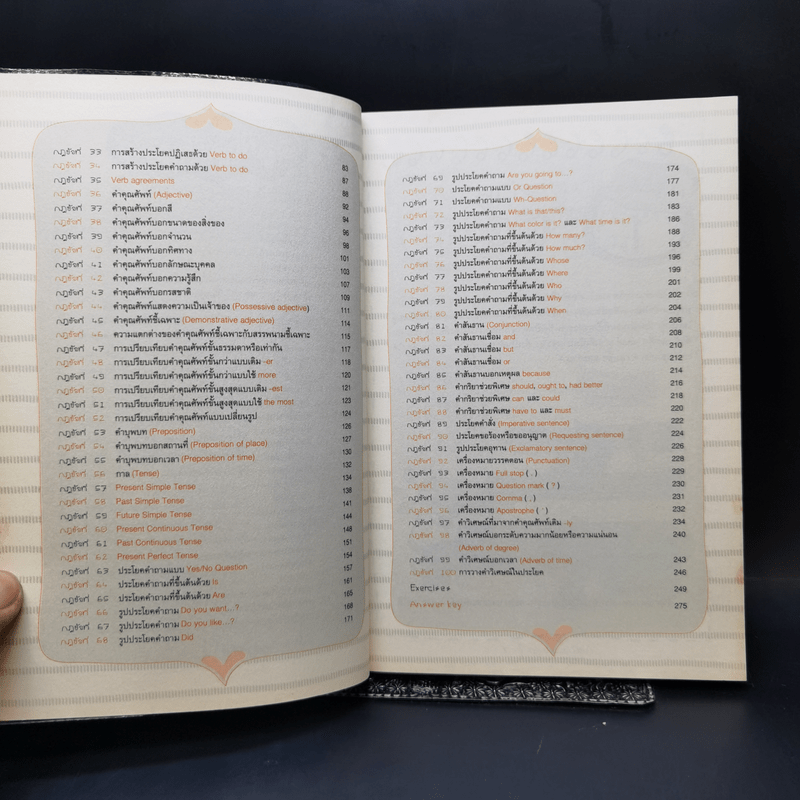 กฎข้อที่ 33 การสร้างประโยคปฏิเสธด้วย Verb to do
กฎข้อที่ 34 การสร้างประโยคคำถามด้วย Verb to do 83
กฎข้อที่ 35 Verb agreements 87
กฎข้อที่ 36 คำคุณศัพท์ (Adjective) 88
กฎข้อที่ 37 คำคุณศัพท์บอกสี 92
กฎข้อที่ 38 คำคุณศัพท์บอกขนาดของสิ่งของ 94
กฎข้อที่ 39 คำคุณศัพท์บอกจำนวน 96
กฎข้อที่ 40 คำคุณศัพท์บอกทิศทาง 98
กฎข้อที่ 41 คำคุณศัพท์บอกลักษณะบุคคล 101
กฎข้อที่ 42 คำคุณศัพท์บอกความรู้สึก 103
กฎข้อที่ 43 คำคุณศัพท์บอกรสชาติ 107
กฎข้อที่ 44 คำคุณศัพท์แสดงความเป็นเจ้าของ (Possessive adjective) 109
กฎข้อที่ 45 คำคุณศัพท์ชี้เฉพาะ (Demonstrative adjective) 111
กฎข้อที่ 46 ความแตกต่างของคำคุณศัพท์ชี้เฉพาะกับสรรพนามชี้เฉพาะ 114
กฎข้อที่ 47 การเปรียบเทียบคำคุณศัพท์ขั้นธรรมดาหรือเท่ากัน 115
กฎข้อที่ 48 การเปรียบเทียบคำคุณศัพท์ขั้นกว่าแบบเติม -er 117
กฎข้อที่ 49 การเปรียบเทียบคำคุณศัพท์ขั้นกว่าแบบใช้ more 118
กฎข้อที่ 50 การเปรียบเทียบคำคุณศัพท์ขั้นสูงสุดแบบเติม -est 120
กฎข้อที่ 51 การเปรียบเทียบคำคุณศัพท์ขั้นสูงสุดแบบใช้ the most 121
กฎข้อที่ 52 การเปรียบเทียบคำคุณศัพท์แบบเปลี่ยนรูป 124
กฎข้อที่ 53 คำบุพบท (Preposition) 126
กฎข้อที่ 54 คำบุพบทบอกสถานที่ (Preposition of place) 127
กฎข้อที่ 55 คำบุพบทบอกเวลา (Preposition of time) 132
กฎข้อที่ 56 กาล (Tense) 135
กฎข้อที่ 57 Present Simple Tense 138
กฎข้อที่ 58 Past Simple Tense 141
กฎข้อที่ 59 Future Simple Tense 144
กฎข้อที่ 60 Present Continuous Tense 148
กฎข้อที่ 61 Past Continuous Tense 151
กฎข้อที่ 62 Present Perfect Tense 154
กฎข้อที่ 63 ประโยคคำถามแบบ Yes/No Question 157
กฎข้อที่ 64 ประโยคคำถามที่ขึ้นต้นด้วย Is 161
กฎข้อที่ 65 ประโยคคำถามที่ขึ้นต้นด้วย Are 165
กฎข้อที่ 66 รูปประโยคคำถาม Do you want...? 168
กฎข้อที่ 67 รูปประโยคคำถาม Do you like...? 171
กฎข้อที่ 68 รูปประโยคคำถาม Did
กฎข้อที่ 69 รูปประโยคคำถาม Are you going to...? 174
กฎข้อที่ 70 ประโยคคำถามแบบ Or Question 177
กฎข้อที่ 71 ประโยคคำถามแบบ Wh-Question 181
กฎข้อที่ 72 รูปประโยคคำถาม What is that/this? 183
กฎข้อที่ 73 รูปประโยคคำถาม What color is it? และ What time is it? 186
กฎข้อที่ 74 รูปประโยคคำถามที่ขึ้นต้นด้วย How many? 188
กฎข้อที่ 75 รูปประโยคคำถามที่ขึ้นต้นด้วย How much? 193
กฎข้อที่ 76 รูปประโยคคำถามที่ขึ้นต้นด้วย Whose 196
กฎข้อที่ 77 รูปประโยคคำถามที่ขึ้นต้นด้วย Where 199
กฎข้อที่ 78 รูปประโยคคำถามที่ขึ้นต้นด้วย Who 201
กฎข้อที่ 79 รูปประโยคคำถามที่ขึ้นต้นด้วย Why 202
กฎข้อที่ 80 รูปประโยคคำถามที่ขึ้นต้นด้วย When 204
กฎข้อที่ 81 คำสันธาน (Conjunction) 206
กฎข้อที่ 82 คำสันธานเชื่อม and 208
กฎข้อที่ 83 คำสันธานเชื่อม but 210
กฎข้อที่ 84 คำสันธานเชื่อม or 212
กฎข้อที่ 85 คำสันธานบอกเหตุผล because 214
กฎข้อที่ 86 คำกริยาช่วยพิเศษ should, ought to, had better 216
กฎข้อที่ 87 คำกริยาช่วยพิเศษ can และ could 218
กฎข้อที่ 88 คำกริยาช่วยพิเศษ have to และ must 220
กฎข้อที่ 89 ประโยคคำสั่ง (Imperative sentence) 222
กฎข้อที่ 90 ประโยคขอร้องหรือขออนุญาต (Requesting sentence) 224
กฎข้อที่ 91 รูปประโยคอุทาน (Exclamatory sentence) 226
กฎข้อที่ 92 เครื่องหมายวรรคตอน (Punctuation) 228
กฎข้อที่ 93 เครื่องหมาย Full stop ( . ) 229
กฎข้อที่ 94 เครื่องหมาย Question mark ( ? ) 230
กฎข้อที่ 95 เครื่องหมาย Comma ( , ) 231
กฎข้อที่ 96 เครื่องหมาย Apostrophe ( ' ) 232
กฎข้อที่ 97 คำวิเศษณ์ที่มาจากคำคุณศัพท์เติม -ly 234
กฎข้อที่ 98 คำวิเศษณ์บอกระดับความมากน้อยหรือความแน่นอน 240
(Adverb of degree)
กฎข้อที่ 99 คำวิเศษณ์บอกเวลา (Adverb of time) 243
กฎข้อที่ 100 การวางคำวิเศษณ์ในประโยค 246
Exercises 249
Answer key 275